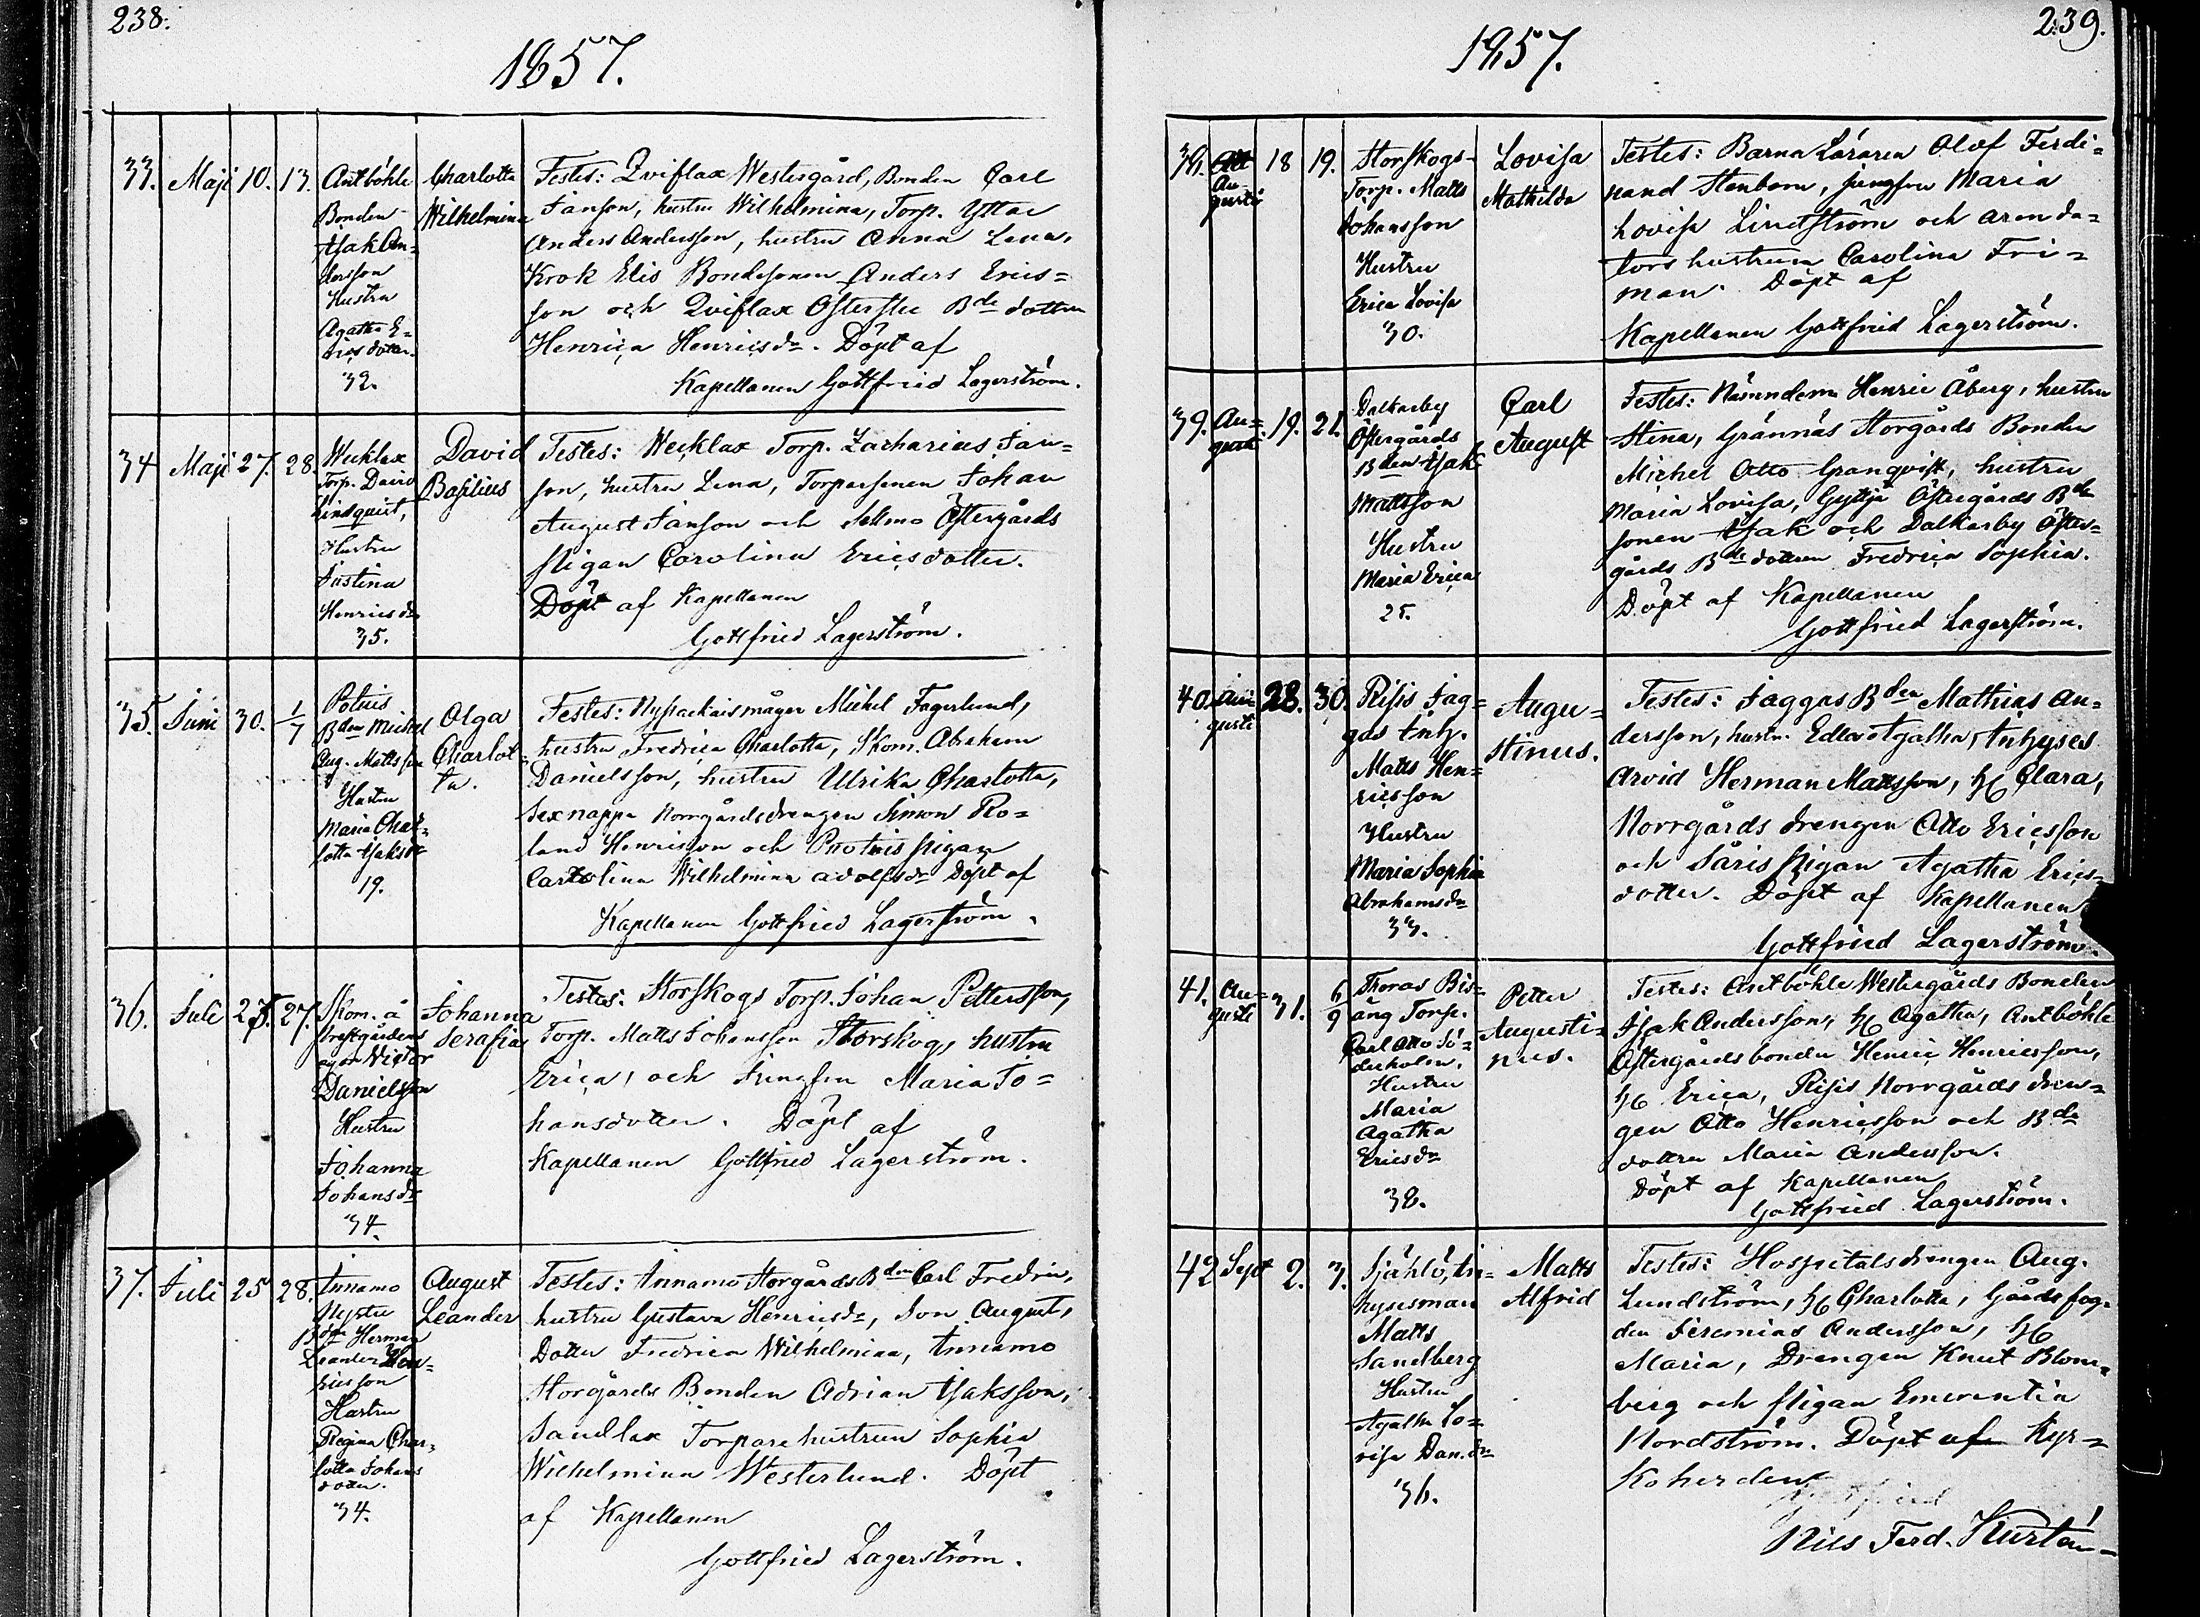 238.
1857.
33. Maji 10. 13.
Antböhle
Bonden
Isak An=
dersson
Hustru
Agatha E=
ricsdotter.
32.
Charlotta
Wilhelmina
Testes: Qviflax Westergård, Bonden Carl
Janson, hustru Wilhelmina, Torp. Yttar
Anders Andersson, hustru Anna Lena,
Krok Elis Bondesonen Anders Erics=
son och Qviflax Östersta Bde dottern
Henrica Henricsdr. Döpt af
Kapellanen Gottfried Lagerström.
34 Maji 27. 28.
Wecklax
Torp. David
Lindqvist,
Hustru
Justina
Henricsdr
35.
David
Basilius
Testes: Wecklax Torp. Zacharias Jan=
son, hustru Lena, Torparsonen Johan
August Janson och Sellmo Östergårds
pigan Carolina Ericsdotter.
Döpt af Kapellanen
Gottfried Lagerström.
35. Juni 30. 1/7
Bden Michel
Aug. Mattsson
Hustru
Maria Char=
lotta Isaksdr
19.
Olga
Charlot=
ta.
Testes: Michel Fagerlund,
hustru Fredrica Charlotta, Skom. Abraham
Danielsson, hustru Ulrika Charlotta,
Sexnappa Norrgårdsdrengen Simon Ro=
land Henricsson och pigan
Carolina Wilhelmina Adolfsdr Döpt af
Kapellanen Gottfried Lagerström.
36. Juli 25. 27.
Skom. å
Prestgårdens
ägor Victor
Danielsson
Hustru
Johanna
Johansdr
34.
Johanna
Serafia
Testes: Storskogs Torp. Johan Pettersson,
Torp. Matts Johansson Storskog, hustru
Erica, och Jungfru Maria Jo=
hansdotter. Döpt af
Kapellanen Gottfried Lagerström.
37. Juli 25 28.
Innamo
Nystu
Bden Herman
Leander Hen=
ricsson
Hustru
Regina Char=
lotta Johans
dotter.
34.
August
Leander
Testes: Innamo Storgårds Bden Carl Fredric,
hustru Gustava Henricsdr, Son August,
Dotter Fredrica Wilhelmina, Innamo
Storgårds Bonden Adrian Isaksson,
Sandlax Torparehustrun Sophia
Wilhelmina Westerlund. Döpt
af Kapellanen
Gottfried Lagerström.
239.
1857.
38. Au=
gusti 18 19.
Storskogs
Torp. Matts
Johansson
Hustru
Erica Lovisa
30.
Lovisa
Mathilda
Testes: Barna Läraren Olof Ferdi=
nand Stenbom, jungfru Maria
Lovisa Lindström och arenda=
tors hustrun Carolina Fri=
man. Döpt af
Kapellanen Gottfried Lagerström.
39. Au=
gusti 19. 21.
Dalkarby
Östergårds
Bden Isak
Mattsson
Hustru
Maria Erica
25.
Carl
August
Testes: Nämndem Henric Åberg, hustru
Stina, Grännäs Storgårds Bonden
Michel Otto Granqvist, hustru
Maria Lovisa, Gyttja Östergårds Bde
sonen Isak och Dalkarby Öster=
gårds Bde dottren Fredrica Sophia.
Döpt af Kapellanen
Gottfried Lagerström.
40. Au=
gusti 28. 30.
Risis Jag=
gas Inh.
Matts Hen=
ricsson
Hustru
Maria Sophia
Abrahamsdr
33.
Augu=
stinus.
Testes: Jaggas Bden Mathias An=
dersson, hustr. Edla Agatha, Inhyses
Arvid Herman Mattsson, H Clara,
Norrgårds drengen Otto Ericsson
och Säris pigan Agatha Erics=
dotter. Döpt af Kapellanen
Gottfried Lagerström.
41. Au=
gusti 31. 6/9
Thoras Bis=
äng Torp.
Carl Otto Sö=
derholm,
Hustru
Maria
Agatha
Ericsdr
38.
Petter
Augusti=
nus.
Testes: Antböhle Westergårds Bonden
Isak Andersson, H Agatha, Antböhle
Östergårds bonden Henric Henricsson,
H Erica, Risis Norrgårds dren=
gen Otto Henricsson och Bde
dottren Maria Andersson.
Döpt af Kapellanen
Gottfried Lagerström.
42 Sept 2. 3.
Själö, In=
hysesman
Matts
Sandberg
Hustru
Agatha Lo=
visa Dan.dr
36.
Matts
Alfrid
Testes: Hospitalsdrengen Aug.
Lundström, H Charlotta, Gårdsfog=
den Jeremias Andersson, H
Maria, Drengen Knut Blom=
berg och pigan Emerentia
Nordström. Döpt af Kyr=
koherden
Nils Ferd. Kurtén